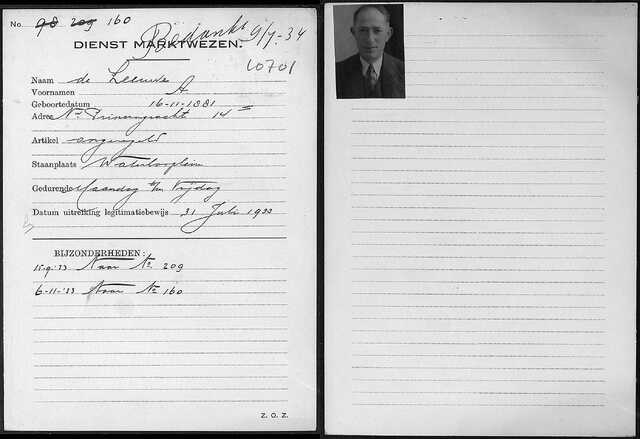 No. 98 209 160
Bedankt 9/7.-34
DIENST MARKTWEZEN.
10701
Naam de Leeuw
Voornamen A
Geboortedatum 16-11-1881
Adres Nwe Prinsengracht 14
Artikel ongeregeld
Staanplaats Waterlooplein
Gedurende Maandag t/m Vrijdag
Datum uitreiking legitimatiebewijs 31 Juli 1933
BIJZONDERHEDEN:
15-9-'33 Naar No 209
6-11-'33 Naar No 160
Z. O. Z.